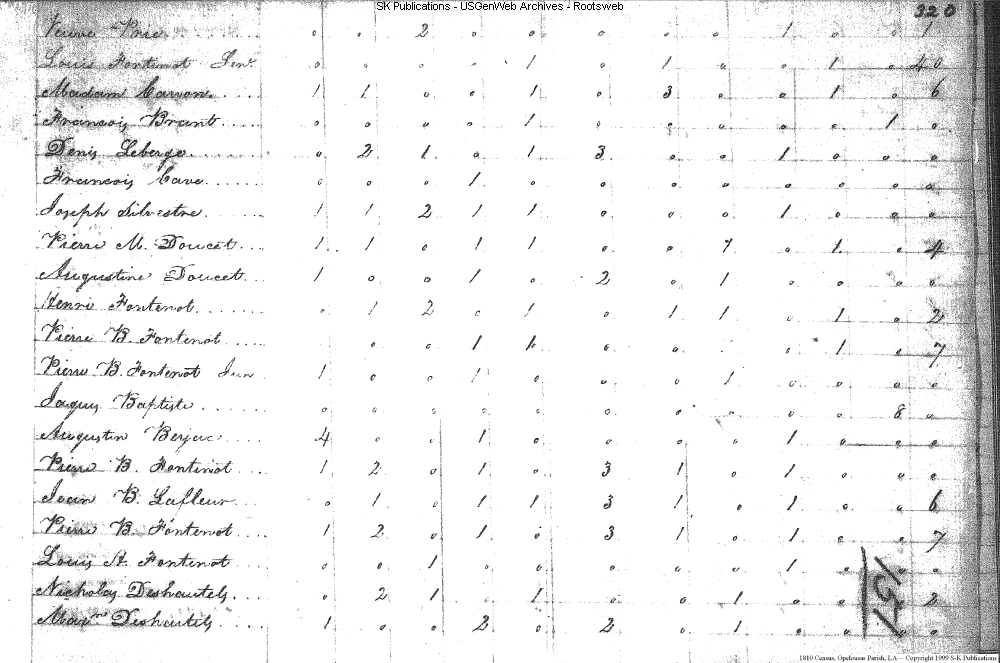 SK Publications - USGenWeb Archives - Rootsweb
320
Veuve 0 0 2 0 0 0 0 0 1 0 0 1
Louis Fontenot Senr 0 0 0 0 1 0 1 0 0 1 0 40
Madam Carron 1 1 0 0 1 0 3 0 0 1 0 6
Francois Brant 0 0 0 0 1 0 0 0 0 0 1 0
Denis Leberge 0 2 1 0 1 3 0 0 1 0 0 0
Francois Cave 0 0 0 1 0 0 0 0 0 0 0 0
Joseph Silvestre 1 1 2 1 1 0 0 0 1 0 0 0
Pierre M. Doucet 1 1 0 1 1 0 0 7 0 1 0 4
Augustine Doucet 1 0 0 1 0 2 0 1 0 0 0 0
Henri Fontenot 0 1 2 0 1 0 1 1 0 1 0 2
Pierre B. Fontenot 0 0 1 0 0 1 0 7
Pierre B. Fontenot Jun 1 0 0 1 0 0 0 1 0 0 0 0
Jaques Baptiste 0 0 0 0 0 0 0 0 0 0 8 0
Augustin Berjac 4 0 0 1 0 0 0 0 1 0 0 0
Pierre B. Fontenot 1 2 0 1 0 3 1 0 1 0 0 0
Jean B. Lafleur 0 1 0 1 1 3 1 0 1 0 0 6
Pierre B. Fontenot 1 2 0 1 0 3 1 0 1 0 0 7
Louis A. Fontenot 0 0 1 0 0 0 0 0 1 0 0 0
Nicholas Deshautels 0 2 1 0 1 0 0 1 0 0 2
Deshautels 1 0 0 2 0 2 0 1 0 0 0 0
151
1810 Census, Opelousas Parish, LA -- Copyright 1999 S-K Publications